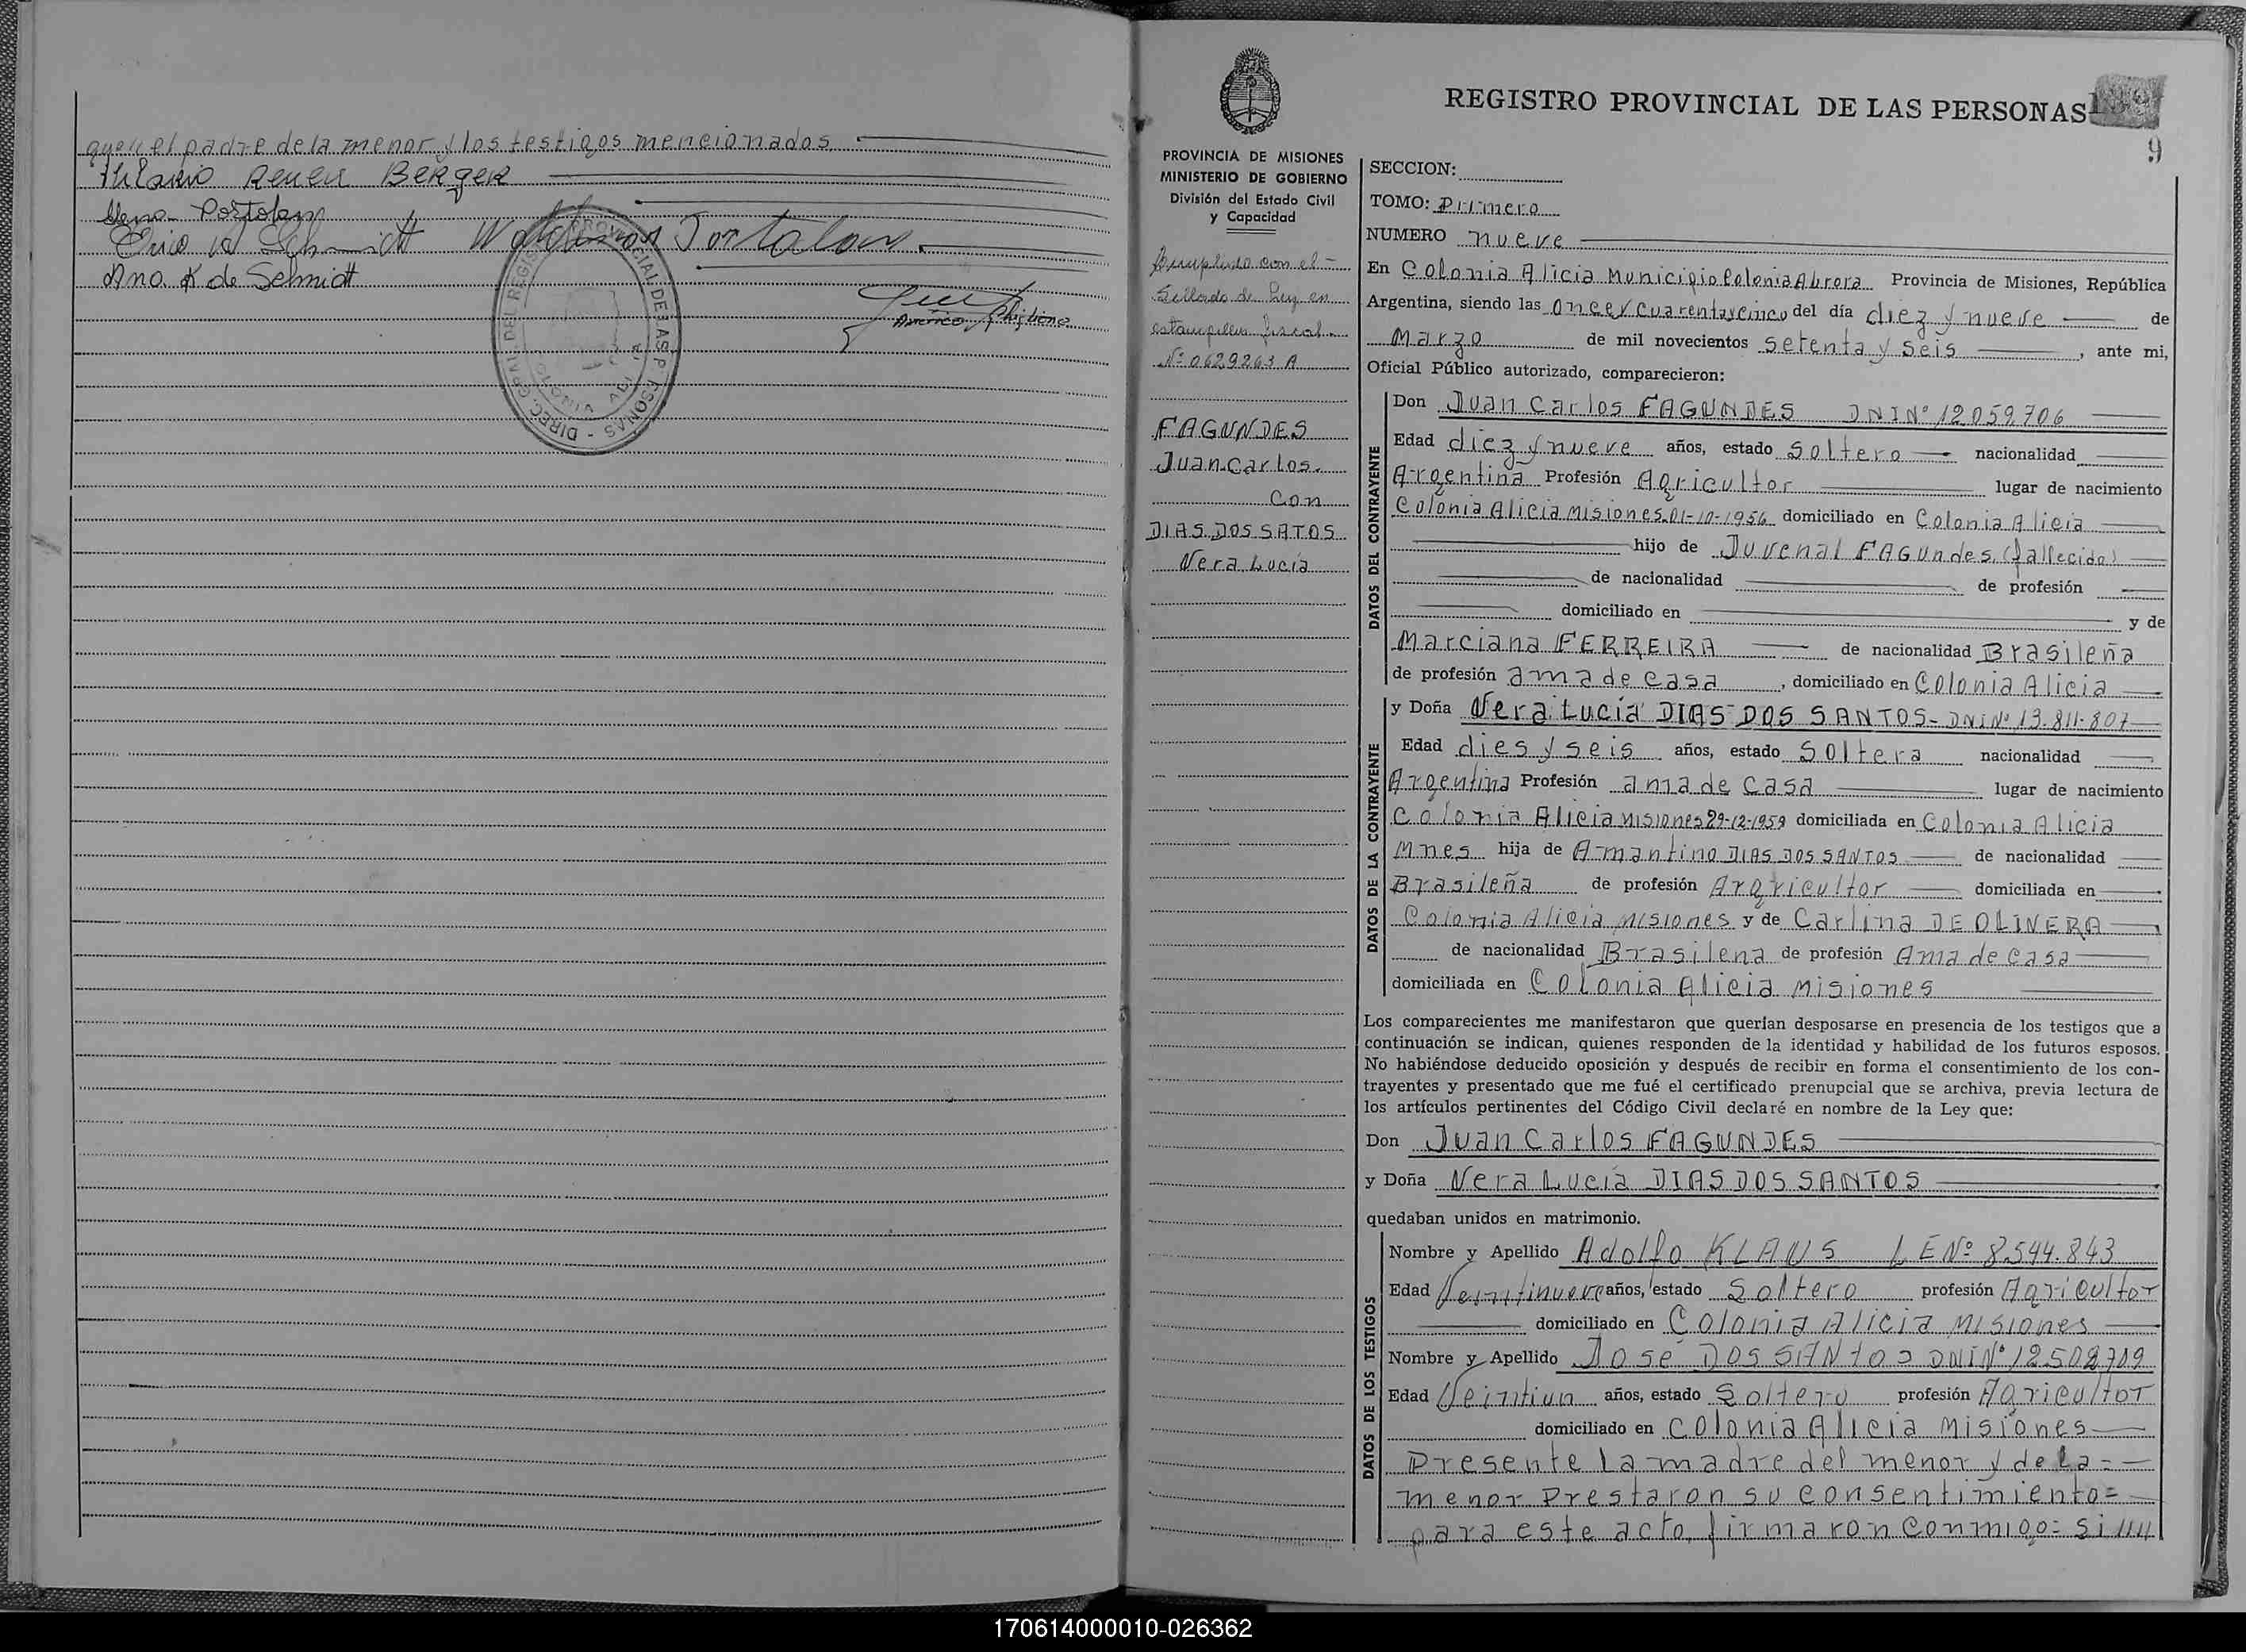 el padre de la menor y los testigos mencionados
Hilario Reneu BERGER
Portolan
Erico W Schmidt Waldemar Portalan
Ana K de Schmidt
Américo Ghiglione
DIREC. GRAL DEL REGIS PROVINCIAL DE LAS PERSONAS
COLONIA ALICIA
REGISTRO PROVINCIAL DE LAS PERSONAS
9
PROVINCIA DE MISIONES
MINISTERIO DE GOBIERNO
División del Estado Civil
y Capacidad
Cumplido con el -
Sellado de Ley en
estampilla fiscal.
Nº 0629263 A
FAGUNDES
Juan Carlos.
Con
DIAS DOS SATOS
Nera Lucía
SECCION:
TOMO: Primero
NUMERO nueve
En Colonia Alicia Municipio Colonia Aurora Provincia de Misiones, República
Argentina, siendo las once y cuarenta y cinco del día diez y nueve de
Marzo de mil novecientos setenta y seis, ante mi,
Oficial Público autorizado, comparecieron:
DATOS DEL CONTRAYENTE
Don Juan Carlos FAGUNDES DNI Nº 12.059.706
Edad diez y nueve años, estado soltero nacionalidad
Argentina Profesión Agricultor lugar de nacimiento
Colonia Alicia Misiones 01-10-1956 domiciliado en Colonia Alicia
hijo de Juvenal FAGUndes (fallecido)
de nacionalidad de profesión
domiciliado en y de
Marciana FERREIRA de nacionalidad Brasileña
de profesión ama de casa, domiciliado en Colonia Alicia
DATOS DE LA CONTRAYENTE
y Doña Nera Lucía DIAS DOS SANTOS - DNI Nº 13.811.807
Edad dies y seis años, estado Soltera nacionalidad
Argentina Profesión ama de casa lugar de nacimiento
Colonia Alicia Misiones 29-12-1959 domiciliada en Colonia Alicia
Mnes hija de Amantino DIAS DOS SANTOS de nacionalidad
Brasileña de profesión Argricultor domiciliada en
Colonia Alicia Misiones y de Carlina DE OLIVERA
de nacionalidad Brasilena de profesión Ama de casa
domiciliada en Colonia Alicia Misiones
Los comparecientes me manifestaron que querían desposarse en presencia de los testigos que a
continuación se indican, quienes responden de la identidad y habilidad de los futuros esposos.
No habiéndose deducido oposición y después de recibir en forma el consentimiento de los con-
trayentes y presentado que me fué el certificado prenupcial que se archiva, previa lectura de
los artículos pertinentes del Código Civil declaré en nombre de la Ley que:
Don Juan Carlos FAGUNDES
y Doña Nera Lucía DIAS DOS SANTOS
quedaban unidos en matrimonio.
DATOS DE LOS TESTIGOS
Nombre y Apellido Adolfo KLAUS L E Nº 8.544.843
Edad Veintinueve años, estado Soltero profesión Agricultor
domiciliado en Colonia Alicia Misiones
Nombre y Apellido José DOS SANTOS DNI Nº 12.502.709
Edad Veintiun años, estado Soltero profesión Agricultor
domiciliado en Colonia Alicia Misiones
Presente la madre del menor y de la = -
menor prestaron su consentimiento =
para este acto, firmaron conmigo =
170614000010-026362